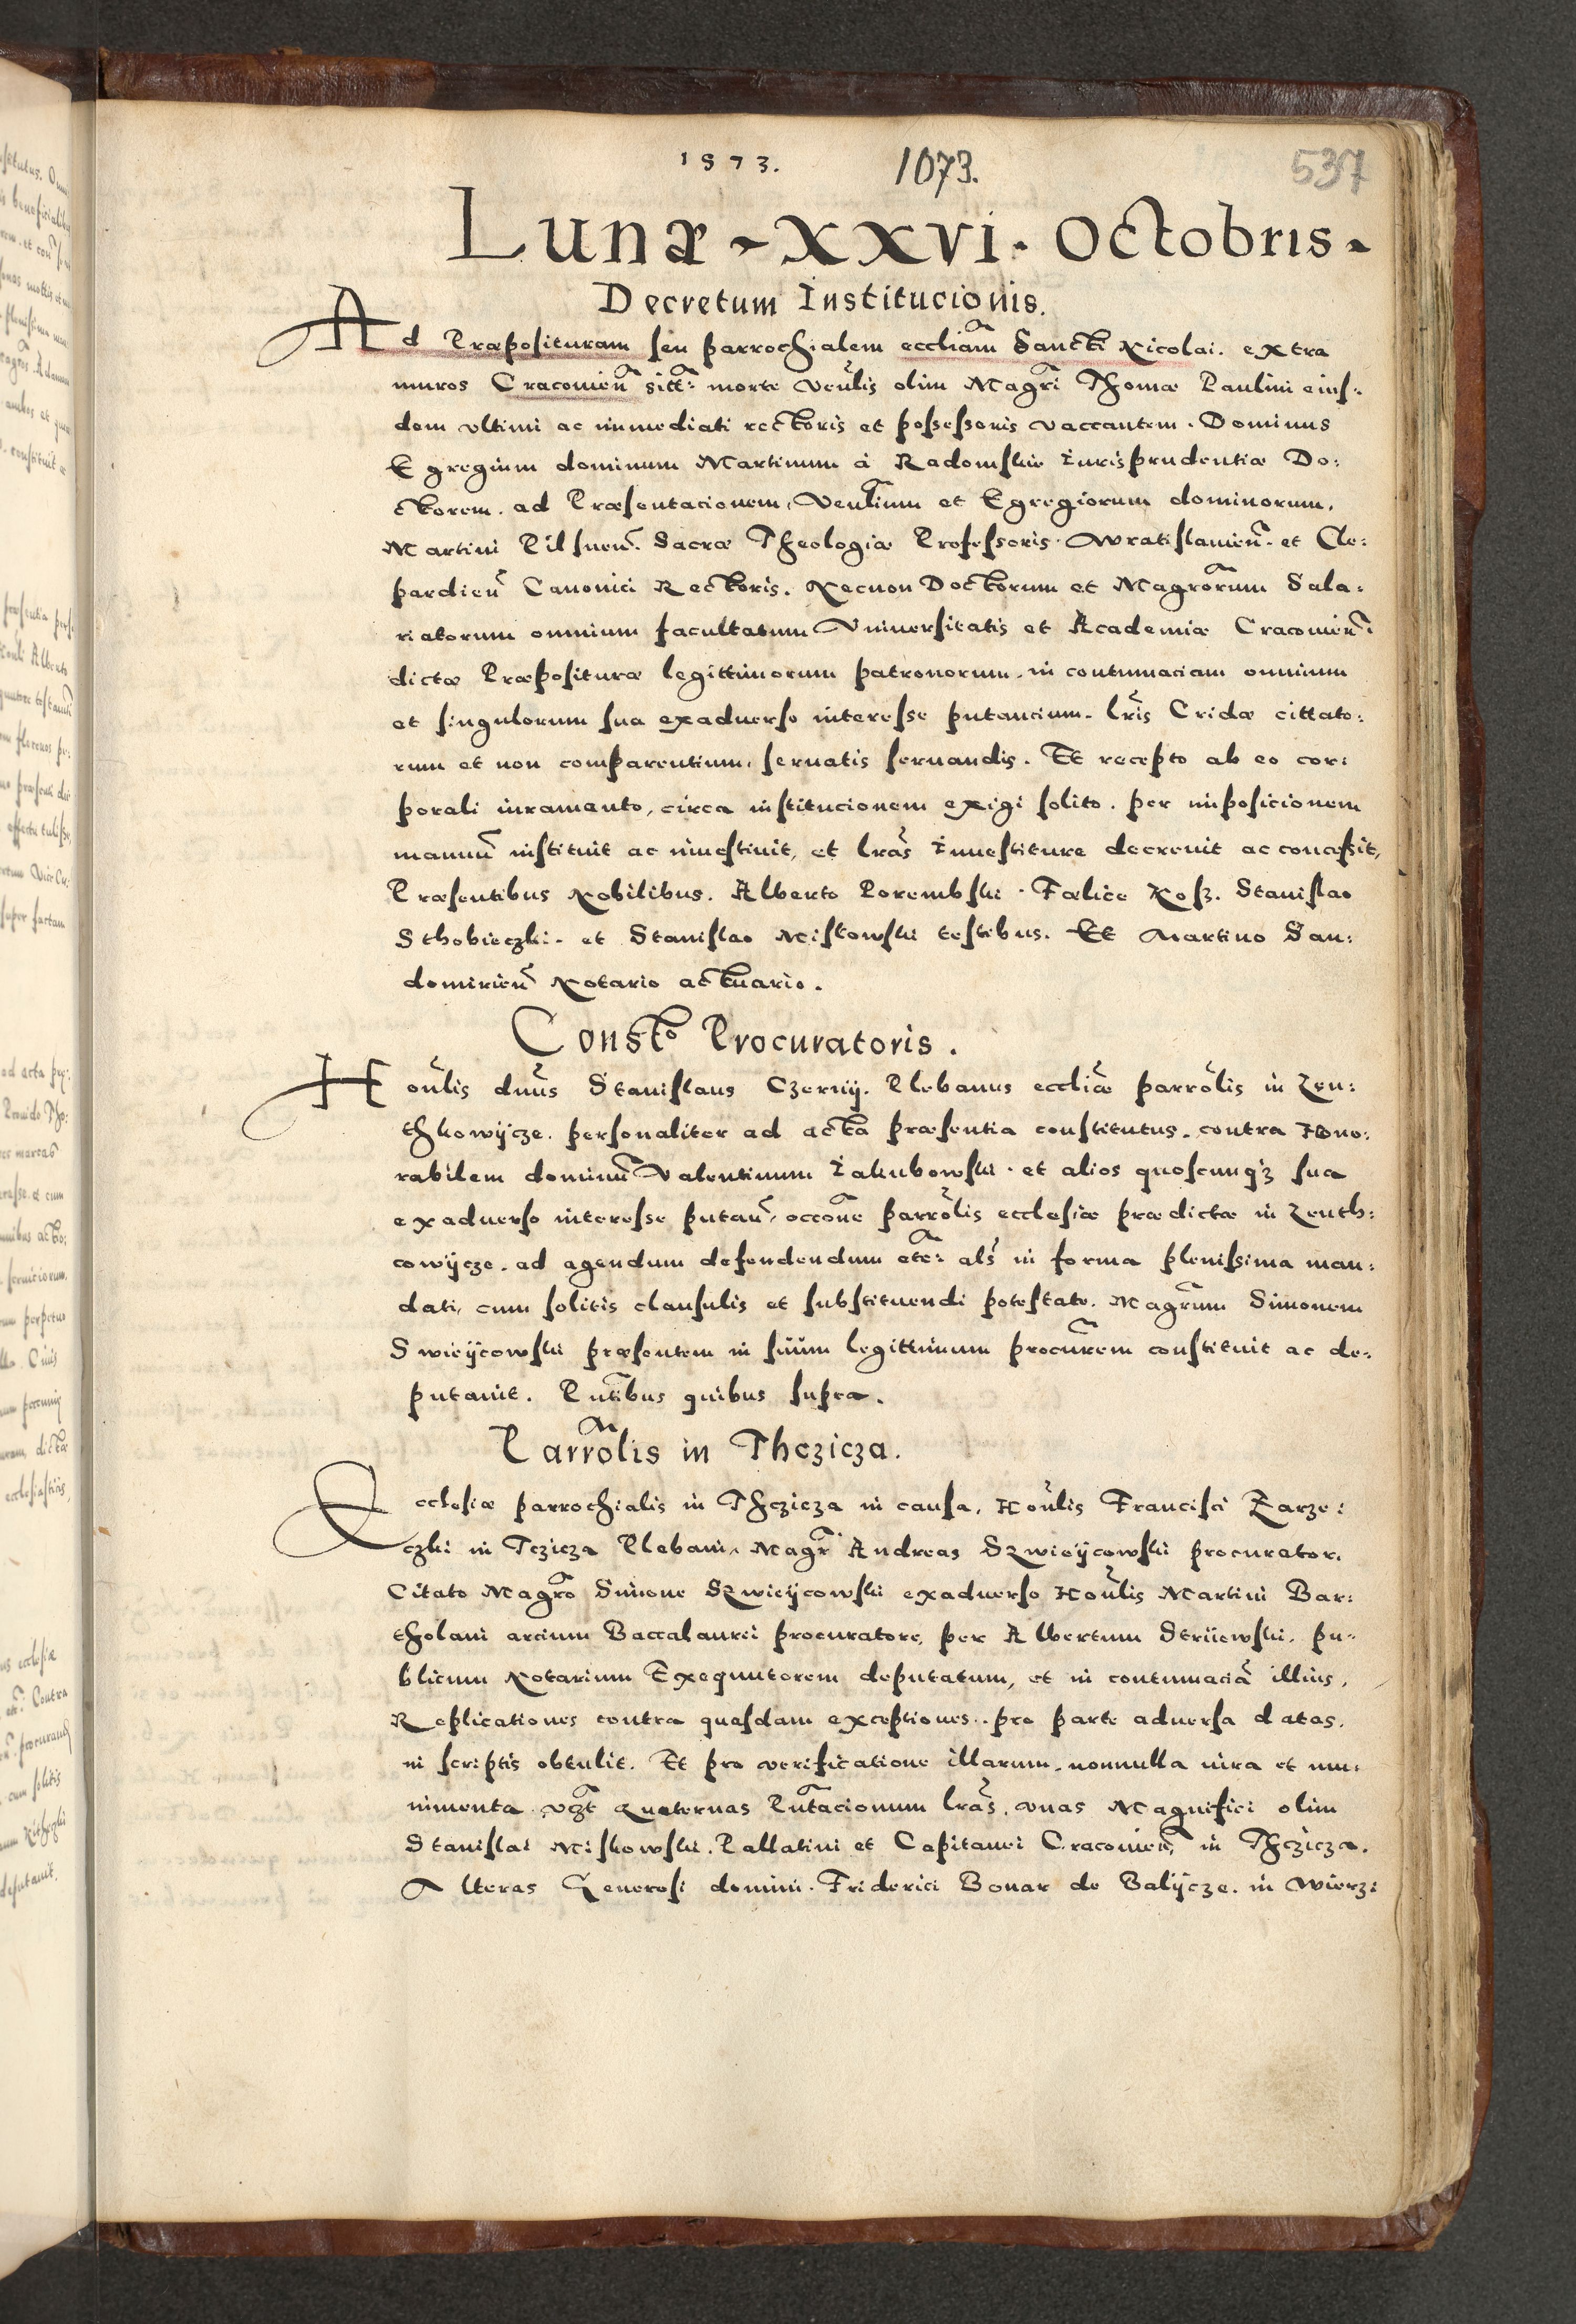 1573. 1073. 537
Lunæ - XXVI. Octobris -
Decretum Institucionis.
Ad Præposituram seu parrochialem eccliam Sancti Nicolai. extra
muros Cracouien sitt: morte Venlis olim Magri Thomæ Paulini eius:
dem vltimi ac immediati rectoris et possessoris vaccantem. Dominus
Egregium dominum Martinum à Radomskie Iurisprudentiæ Do:
ctorem. ad Præsentacionem, Venlium et Egregiorum dominorum,
Martini Pilsnen. Sacræ Theologiæ Professoris. Wratislauien. et Cle:
pardien Canonici Rectoris. Necnon Doctorum et Magrorum Sala:
riatorum omnium facultatum Vniuersitatis et Academiæ Cracouien:
dictæ Præposituræ legittimorum patronorum. in contumaciam omnium
et singulorum sua exaduerso interesse putancium. lris Cridæ cittato:
rum et non comparentium, seruatis seruandis. Et recepto ab eo cor:
porali iuramento, circa institucionem exigi solito. per imposicionem
manuu instituit ac inuestiuit, et lras Inuestiture decreuit ac concessit,
Præsentibus Nobilibus. Alberto Porembski. Fælice Kosz. Stanislao
Sthobieczki. et Stanislao Miskowski testibus. Et Martino San:
domirien Notario actuario.
Consto Procuratoris.
Honlis dnus Stanislaus Czerny. Plebanus eccliæ parrolis in Zen:
thkowycze. personaliter ad acta præsentia constitutus. contra Hono:
rabilem dominu Valentinum Iakubowski. et alios quoscunqz sua
exaduerso interesse putan, occone parrolis ecclesiæ prædictæ in Zenth:
cowycze. ad agendum defendendum etc: als in forma plenissima man:
dati, cum solitis clausulis et substituendi potestate. Magrum Simonem
Swieycowski præsentem in suum legittimum procurem constituit ac de:
putauit. Pntibus quibus supra.
Parrolis in Thczicza.
Ecclesiæ parrochialis in Thczicza in causa, Honlis Francisci Zarze:
czki in Tczicza Plebani, Magr Andreas Szwieycowski procurator.
Citato Magro Simone Szwieycowski exaduerso Honlis Martini Bar:
tholani arcium Baccalaurei procuratore, per Albertum Striiewski. pu:
blicum Notarium Exequutorem deputatum, et in contumacia illius,
Replicationes contra quasdam exceptiones. pro parte aduersa datas,
in scriptis obtulit. Et pro verificatione illarum. nonnulla iura et mu:
nimenta vzt quaternas Pntacionum lras, vnas Magnifici olim
Stanislai Miskowski. Pallatini et Capitanei Cracouien, in Thczicza.
Alteras Generosi domini. Friderici Bonar de Balycze. in Wierz: